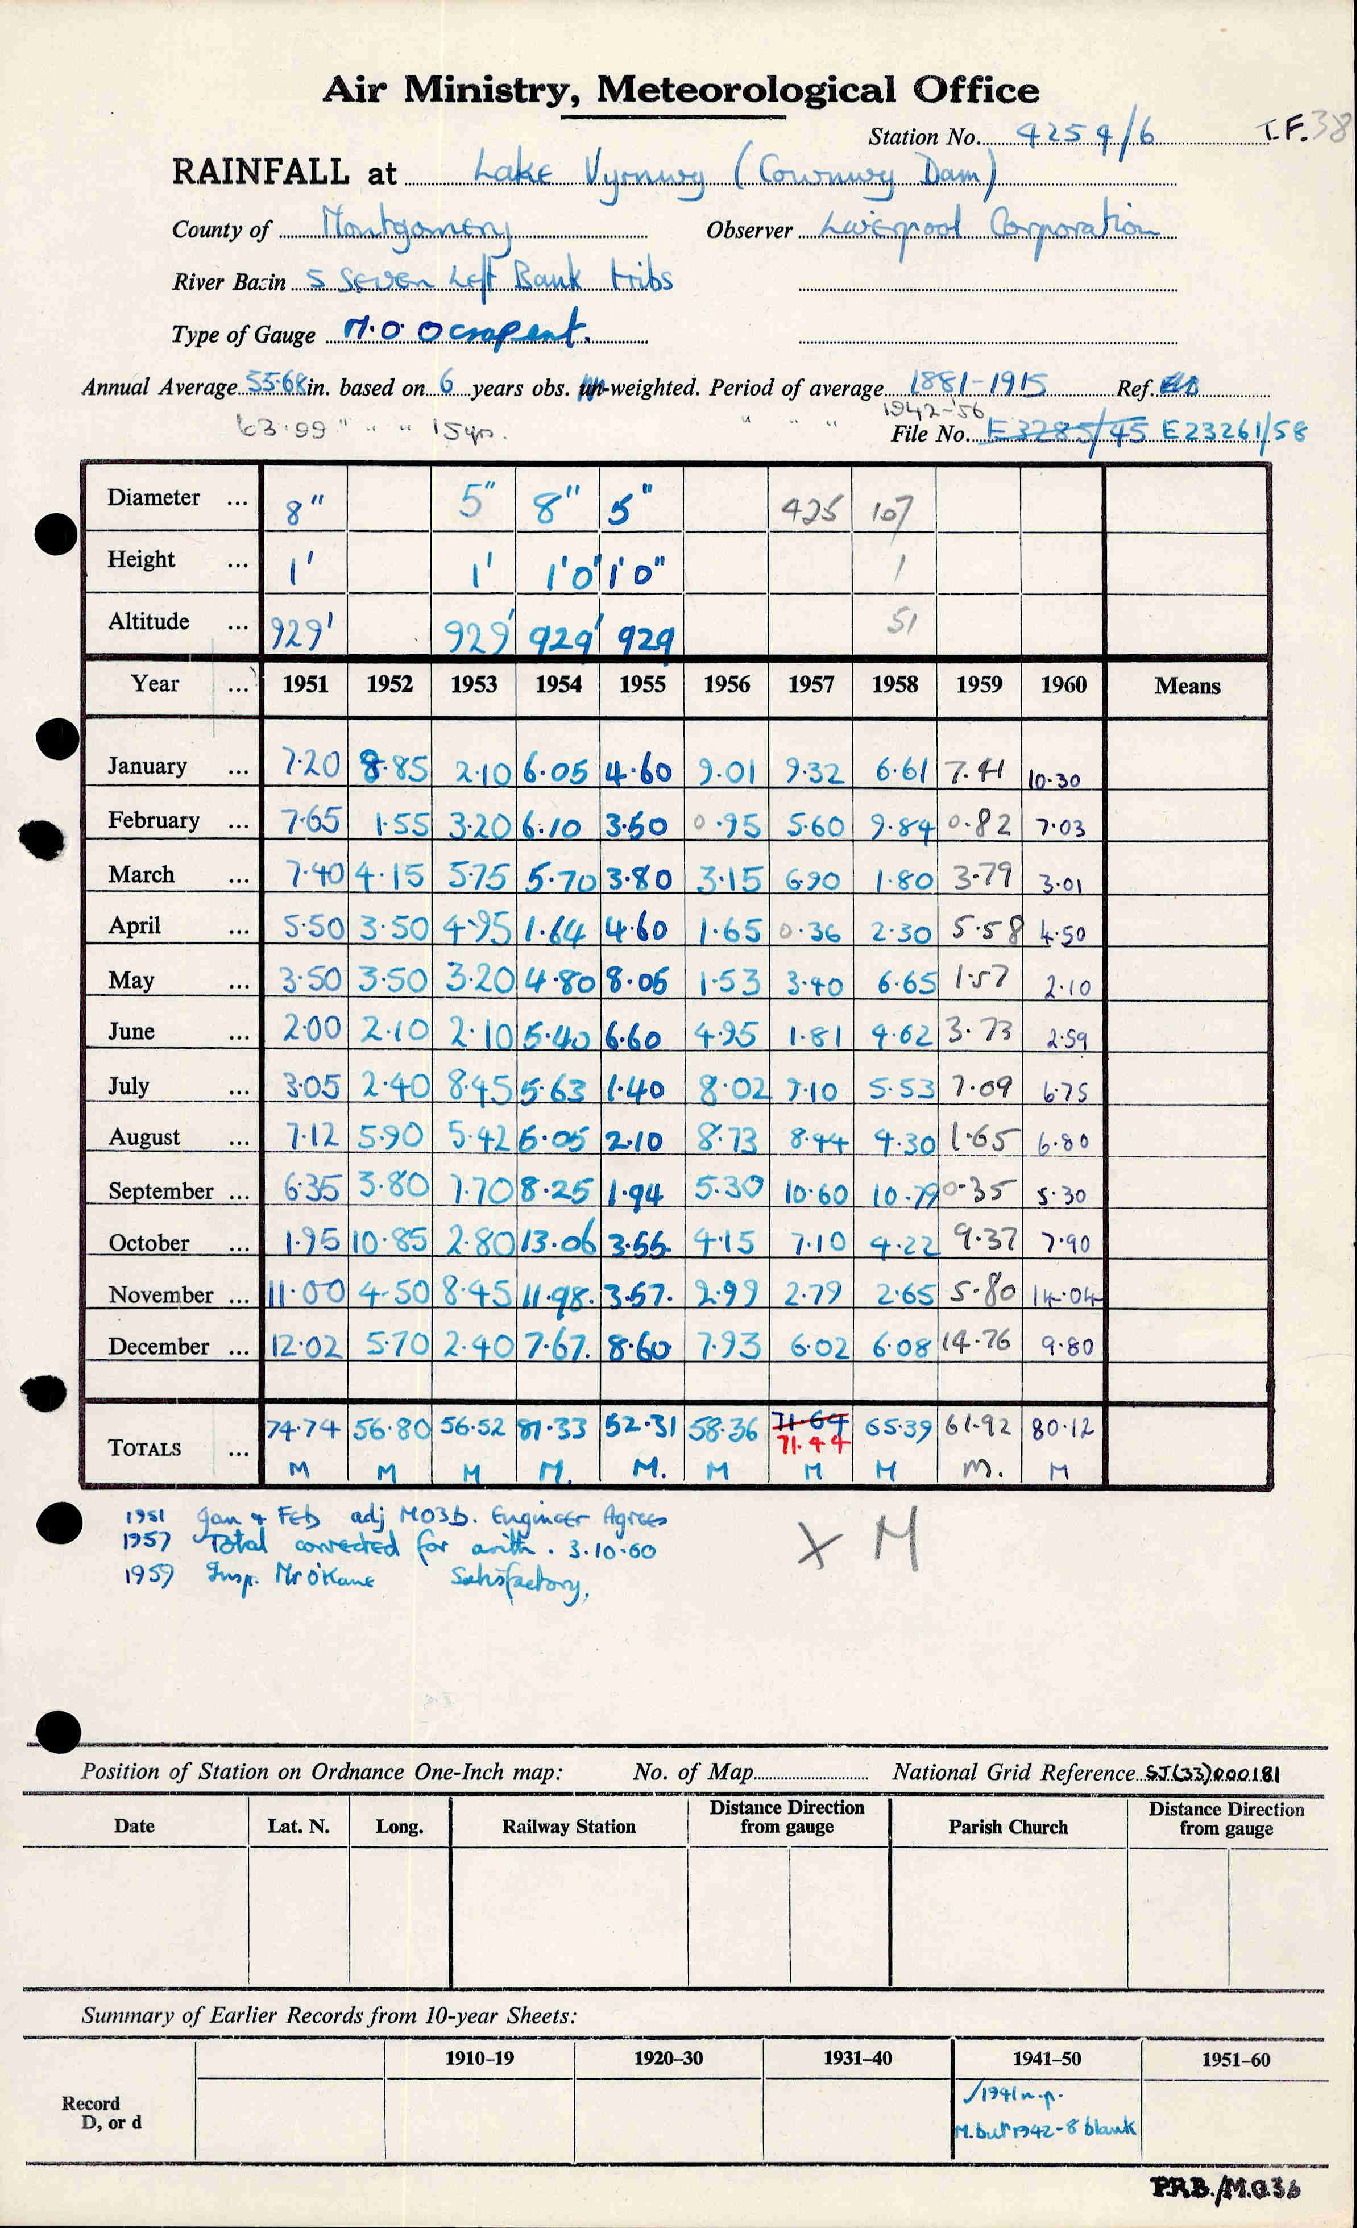 Air Ministry, Meteorological Office
Station No. 4254/6 T.F. 38
RAINFALL at Lake Vyrnwy (Cownwy Dam)
County of Montgomery Observer Liverpool Corporation
River Basin 5 Seven Left Bank tribs
Type of Gauge M.O. Octapent.
Annual Average 55.68 in. based on 6 years obs. un-weighted. Period of average 1881-1915 Ref.
63.99 " " " 15 yrs. " " " 1942-'56
File No. E3285/45 E23261/58
Diameter ... 8" 5" 8" 5" 425 107
Height ... 1' 1' 1'0" 1'0" 1
Altitude ... 929' 929' 929' 929 51
Year ... 1951 1952 1953 1954 1955 1956 1957 1958 1959 1960 Means
January ... 7.20 8.85 2.10 6.05 4.60 9.01 9.32 6.61 7.41 10.30
February ... 7.65 1.55 3.20 6.10 3.50 0.95 5.60 9.84 0.82 7.03
March ... 7.40 4.15 5.75 5.70 3.80 3.15 6.90 1.80 3.79 3.01
April ... 5.50 3.50 4.95 1.64 4.60 1.65 0.36 2.30 5.58 4.50
May ... 3.50 3.50 3.20 4.80 8.05 1.53 3.40 6.65 1.57 2.10
June ... 2.00 2.10 2.10 5.40 6.60 4.95 1.81 4.62 3.73 2.59
July ... 3.05 2.40 8.45 5.63 1.40 8.02 9.10 5.53 7.09 6.75
August ... 7.12 5.90 5.42 5.05 2.10 8.73 8.44 4.30 1.65 6.80
September ... 6.35 3.80 7.70 8.25 1.94 5.30 10.60 10.79 0.35 5.30
October ... 1.95 10.85 2.80 13.06 3.55 4.15 7.10 4.22 9.37 7.90
November ... 11.00 4.50 8.45 11.98 3.57 2.99 2.79 2.65 5.80 14.04
December ... 12.02 5.70 2.40 7.67 8.60 7.93 6.02 6.08 14.76 9.80
TOTALS ... 74.74 56.80 56.52 81.33 52.31 58.36 71.64 65.39 61.92 80.12
71.44
M M M M. M. M M M M. M
1951 Jan & Feb adj MO3b. Engineer Agrees
1957 Total corrected for arith. 3.10.60
1959 Insp. Mr O'Kane Satisfactory.
X M
Position of Station on Ordnance One-Inch map: No. of Map National Grid Reference SJ(33)000181
Date Lat. N. Long. Railway Station Distance Direction from gauge Parish Church Distance Direction from gauge
Summary of Earlier Records from 10-year Sheets:
1910–19 1920–30 1931–40 1941–50 1951–60
Record D, or d
/1941 n.p.
M. but 1942-8 blank
P.R.B./M.O.3b